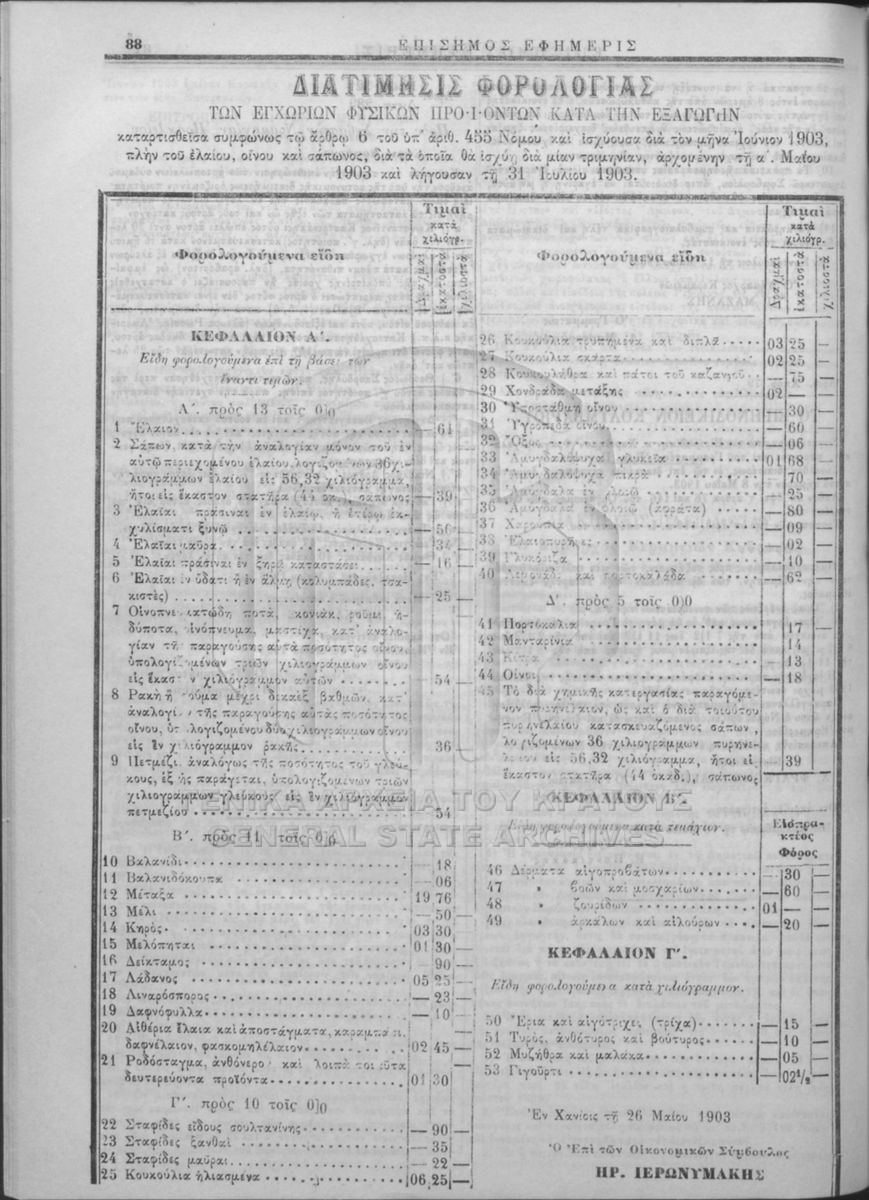 88
ΕΠΙΣΗΜΟΣ ΕΦΗΜΕΡΙΣ
ΔΙΑΤΙΜΗΣΙΣ ΦΟΡΟΛΟΓΙΑΣ
ΤΩΝ ΕΓΧΩΡΙΩΝ ΦΥΣΙΚΩΝ ΠΡΟ·Ι·ΟΝΤΩΝ ΚΑΤΑ ΤΗΝ ΕΞΑΓΩΓΗΝ
καταρτισθεῖσα συμφώνως τῷ ἄρθρῳ 6 τοῦ ὑπ' ἀριθ. 455 Νόμου καὶ ἰσχύουσα διὰ τὸν μῆνα Ἰούνιον 1903,
πλὴν τοῦ ἐλαίου, οἴνου καὶ σάπωνος, διὰ τὰ ὁποῖα θὰ ἰσχύῃ διὰ μίαν τριμηνίαν, ἀρχομένην τῇ α'. Μαΐου
1903 καὶ λήγουσαν τῇ 31 Ἰουλίου 1903.
Φορολογούμενα εἴδη
Τιμαὶ
κατὰ
χιλιόγρ.
Δραχμαὶ
ἑκατοστὰ
ΚΕΦΑΛΑΙΟΝ Α'.
Εἴδη φορολογούμενα ἐπὶ τῇ βάσει τῶν
ἔναντι τιμῶν.
Α'. πρὸς 13 τοῖς 0)0
1 Ἔλαιον — 61
2 Σάπων κατὰ τὴν ἀναλογίαν μόνον τοῦ ἐν
αὐτῷ περιεχομένου ἐλαίου λογιζομένων 36 χι-
λιογράμμων ἐλαίου εἰς 56,32 χιλιόγραμμα,
ἤτοι εἰς ἕκαστον στατῆρα (44 ὀκ.), σάπωνος — 39
3 Ἐλαῖαι πράσιναι ἐν ἐλαίῳ, ἢ ἑτέρῳ ἐκ-
χυλίσματι ξυνῷ — 50
4 Ἐλαῖαι μαῦραι — 34
5 Ἐλαῖαι πράσιναι ἐν ξηρᾷ καταστάσει — 16
6 Ἐλαῖαι ἐν ὕδατι ἢ ἐν ἅλμῃ (κολυμπάδες, τσα-
κιστὲς) — 25 —
7 Οἰνοπνευματώδη ποτά, κονιάκ, ροῦμι, ἡ-
δύποτα, οἰνόπνευμα, μαστίχα, κατ' ἀναλο-
γίαν τῆς παραγούσης αὐτὰ ποσότητος οἴνου,
ὑπολογιζομένων τριῶν χιλιογράμμων οἴνου
εἰς ἕκαστον χιλιόγραμμον αὐτῶν — 54 —
8 Ρακὴ ἢ σοῦμα μέχρι δεκαὲξ βαθμῶν, κατ'
ἀναλογίαν τῆς παραγούσης αὐτὰς ποσότητος
οἴνου, ὑπολογιζομένου δύο χιλιογράμμων οἴνου
εἰς ἓν χιλιόγραμμον ρακῆς 36 —
9 Πετμέζι ἀναλόγως τῆς ποσότητος τοῦ γλεύ-
κους, ἐξ ἧς παράγεται, ὑπολογιζομένων τριῶν
χιλιογράμμων γλεύκους εἰς ἓν χιλιόγραμμον
πετμεζίου — 54
Β'. πρὸς 11 τοῖς 0)0
10 Βαλανίδι — 18
11 Βαλανιδόκουπα — 06
12 Μέταξα 19 76
13 Μέλι — 50 —
14 Κηρὸς 03 30
15 Μελόπηται 01 30 —
16 Δείκταμος — 90 —
17 Λάδανος 05 25 —
18 Λιναρόσπορος — 23 —
19 Δαφνόφυλλα — 10 —
20 Αἰθέρια ἔλαια καὶ ἀποστάγματα,
δαφνέλαιον, φασκομηλέλαιον 02 45 —
21 Ροδόσταγμα, ἀνθόνερο καὶ λοιπὰ τοιαῦτα
δευτερεύοντα προϊόντα 01 30
Γ'. πρὸς 10 τοῖς 0)0
22 Σταφίδες εἴδους σουλτανίνης — 90 —
23 Σταφίδες ξανθαὶ — 35
24 Σταφίδες μαῦραι — 22 —
25 Κουκούλια ἡλιασμένα 06,25 —
Φορολογούμενα εἴδη
Τιμαὶ
κατὰ
χιλιόγρ.
Δραχμαὶ
ἑκατοστὰ
26 Κουκούλια τρυπημένα καὶ διπλᾶ 03 25 —
27 Κουκούλια σκάρτα 02 25 —
28 Κουκουλάθρα καὶ πάτοι τοῦ καζανίου — 75 —
29 Χονδράδα μετάξης 02 —
30 Ὑποστάθμη οἴνου — 30 —
31 Ὑγρόπεδα οἴνου — 60 —
32 Ὄξος — 06 —
33 Ἀμυγδαλόψυχα γλυκεῖα 01 68 —
34 Ἀμυγδαλόψυχα πικρὰ — 70 —
35 Ἀμύγδαλα ἐν φλοιῷ — 25 —
36 Ἀμύγδαλα ἐν φλοιῷ (ἀφράτα) — 80 —
37 Χαρούπια — 09 —
38 Ἐλαιοπυρῆνες — 02 —
39 Γλυκόριζα — 10 —
40 καὶ πορτοκαλάδα — 62 —
Δ'. πρὸς 5 τοῖς 0)0
41 Πορτοκάλια 17 —
42 Μανταρίνια 14
43 Κίτρα — 13
44 Οἶνοι — 18
45 Τὸ διὰ χημικῆς κατεργασίας παραγόμε-
νον πυρηνέλαιον, ὡς καὶ ὁ διὰ τοιούτου
πυρηνελαίου κατασκευαζόμενος σάπων,
λογιζομένων 36 χιλιογράμμων πυρηνε-
λαίου εἰς 56,32 χιλιόγραμμα, ἤτοι εἰς
ἕκαστον στατῆρα (44 ὀκάδ.), σάπωνος — 39
ΚΕΦΑΛΑΙΟΝ Β'.
Εἴδη φορολογούμενα κατὰ τεμάχιον.
Εἰσπρα-
κτέος
Φόρος
46 Δέρματα αἰγοπροβάτων — 30 —
47 » βοῶν καὶ μοσχαρίων — 60 —
48 » ζουρίδων 01 — —
49 » ἀρκάλων καὶ αἰλούρων — 20 —
ΚΕΦΑΛΑΙΟΝ Γ'.
Εἴδη φορολογούμενα κατὰ χιλιόγραμμον.
50 Ἔρια καὶ αἰγότριχες (τρίχα) — 15 —
51 Τυρός, ἀνθότυρος καὶ βούτυρος — 10 —
52 Μυζήθρα καὶ μαλάκα — 05 —
53 Γιγοῦρτι — 02½ —
Ἐν Χανίοις τῇ 26 Μαΐου 1903
Ὁ Ἐπὶ τῶν Οἰκονομικῶν Σύμβουλος
ΗΡ. ΙΕΡΩΝΥΜΑΚΗΣ
ΓΕΝΙΚΑ ΑΡΧΕΙΑ ΤΟΥ ΚΡΑΤΟΥΣ
GENERAL STATE ARCHIVES